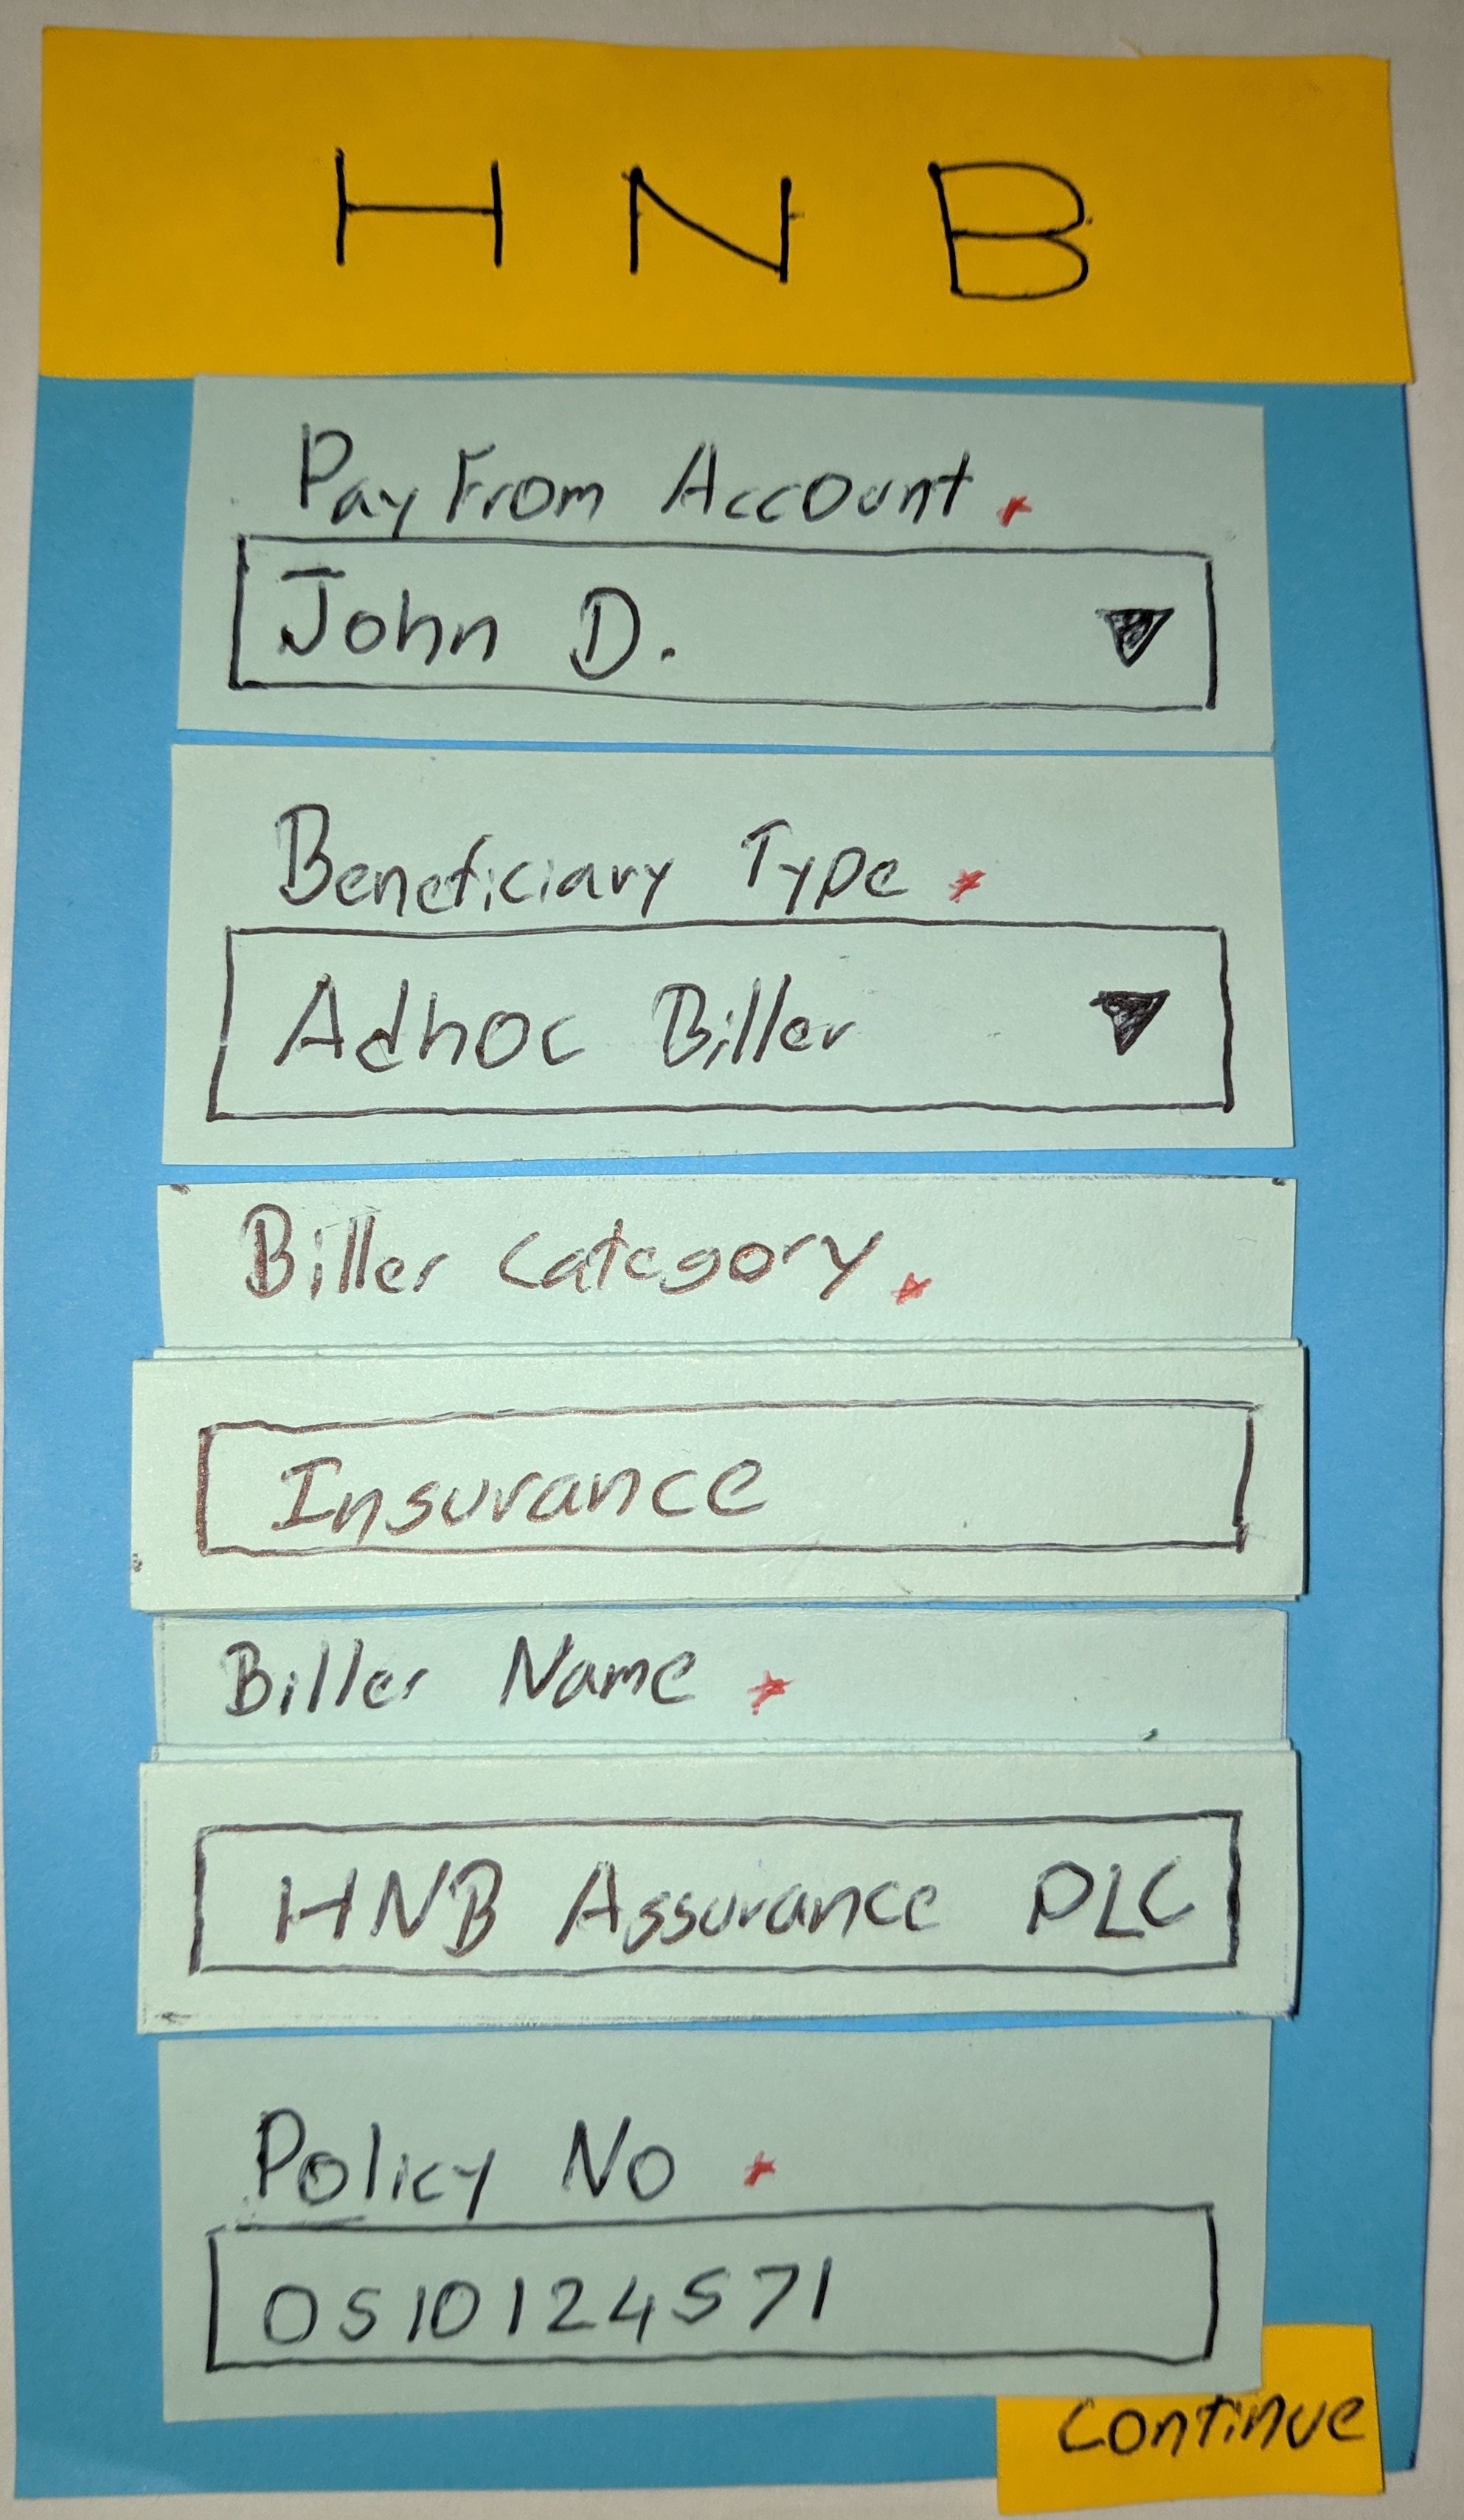 H N B
Pay From Account *
John D.
Beneficiary Type *
Adhoc Biller
Biller Category *
Insurance
Biller Name *
HNB Assurance PLC
Policy No *
0510124571
Continue